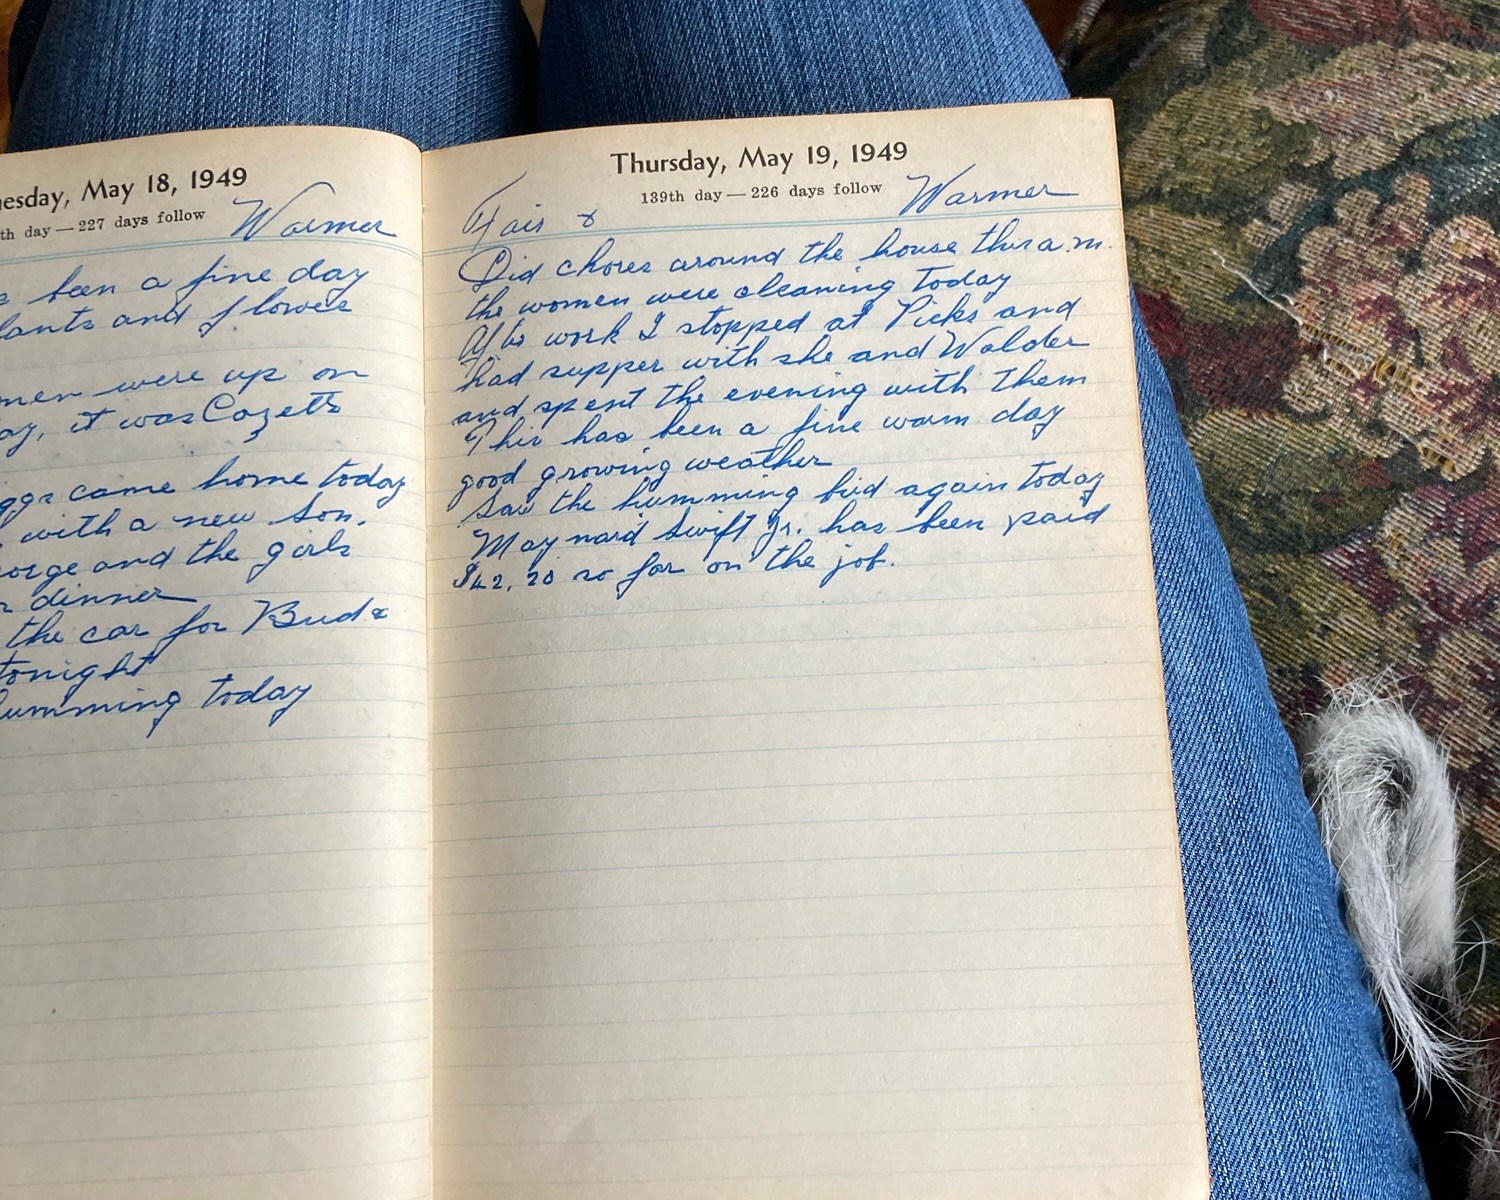 esday, May 18, 1949
th day — 227 days follow
Warmer
been a fine day
lants and flowers
men were up on
ay, it was Cozetts
ggs came home today
with a new son.
orge and the girls
dinner
the car for Bud &
tonight
humming today
Thursday, May 19, 1949
139th day — 226 days follow
Fair & Warmer
Did chores around the house this a.m.
the women were cleaning today
After work I stopped at Picks and
had supper with she and Walder
and spent the evening with them
This has been a fine warm day
good growing weather
Saw the humming bird again today
Maynard Swift Jr. has been paid
$42.20 so far on the job.